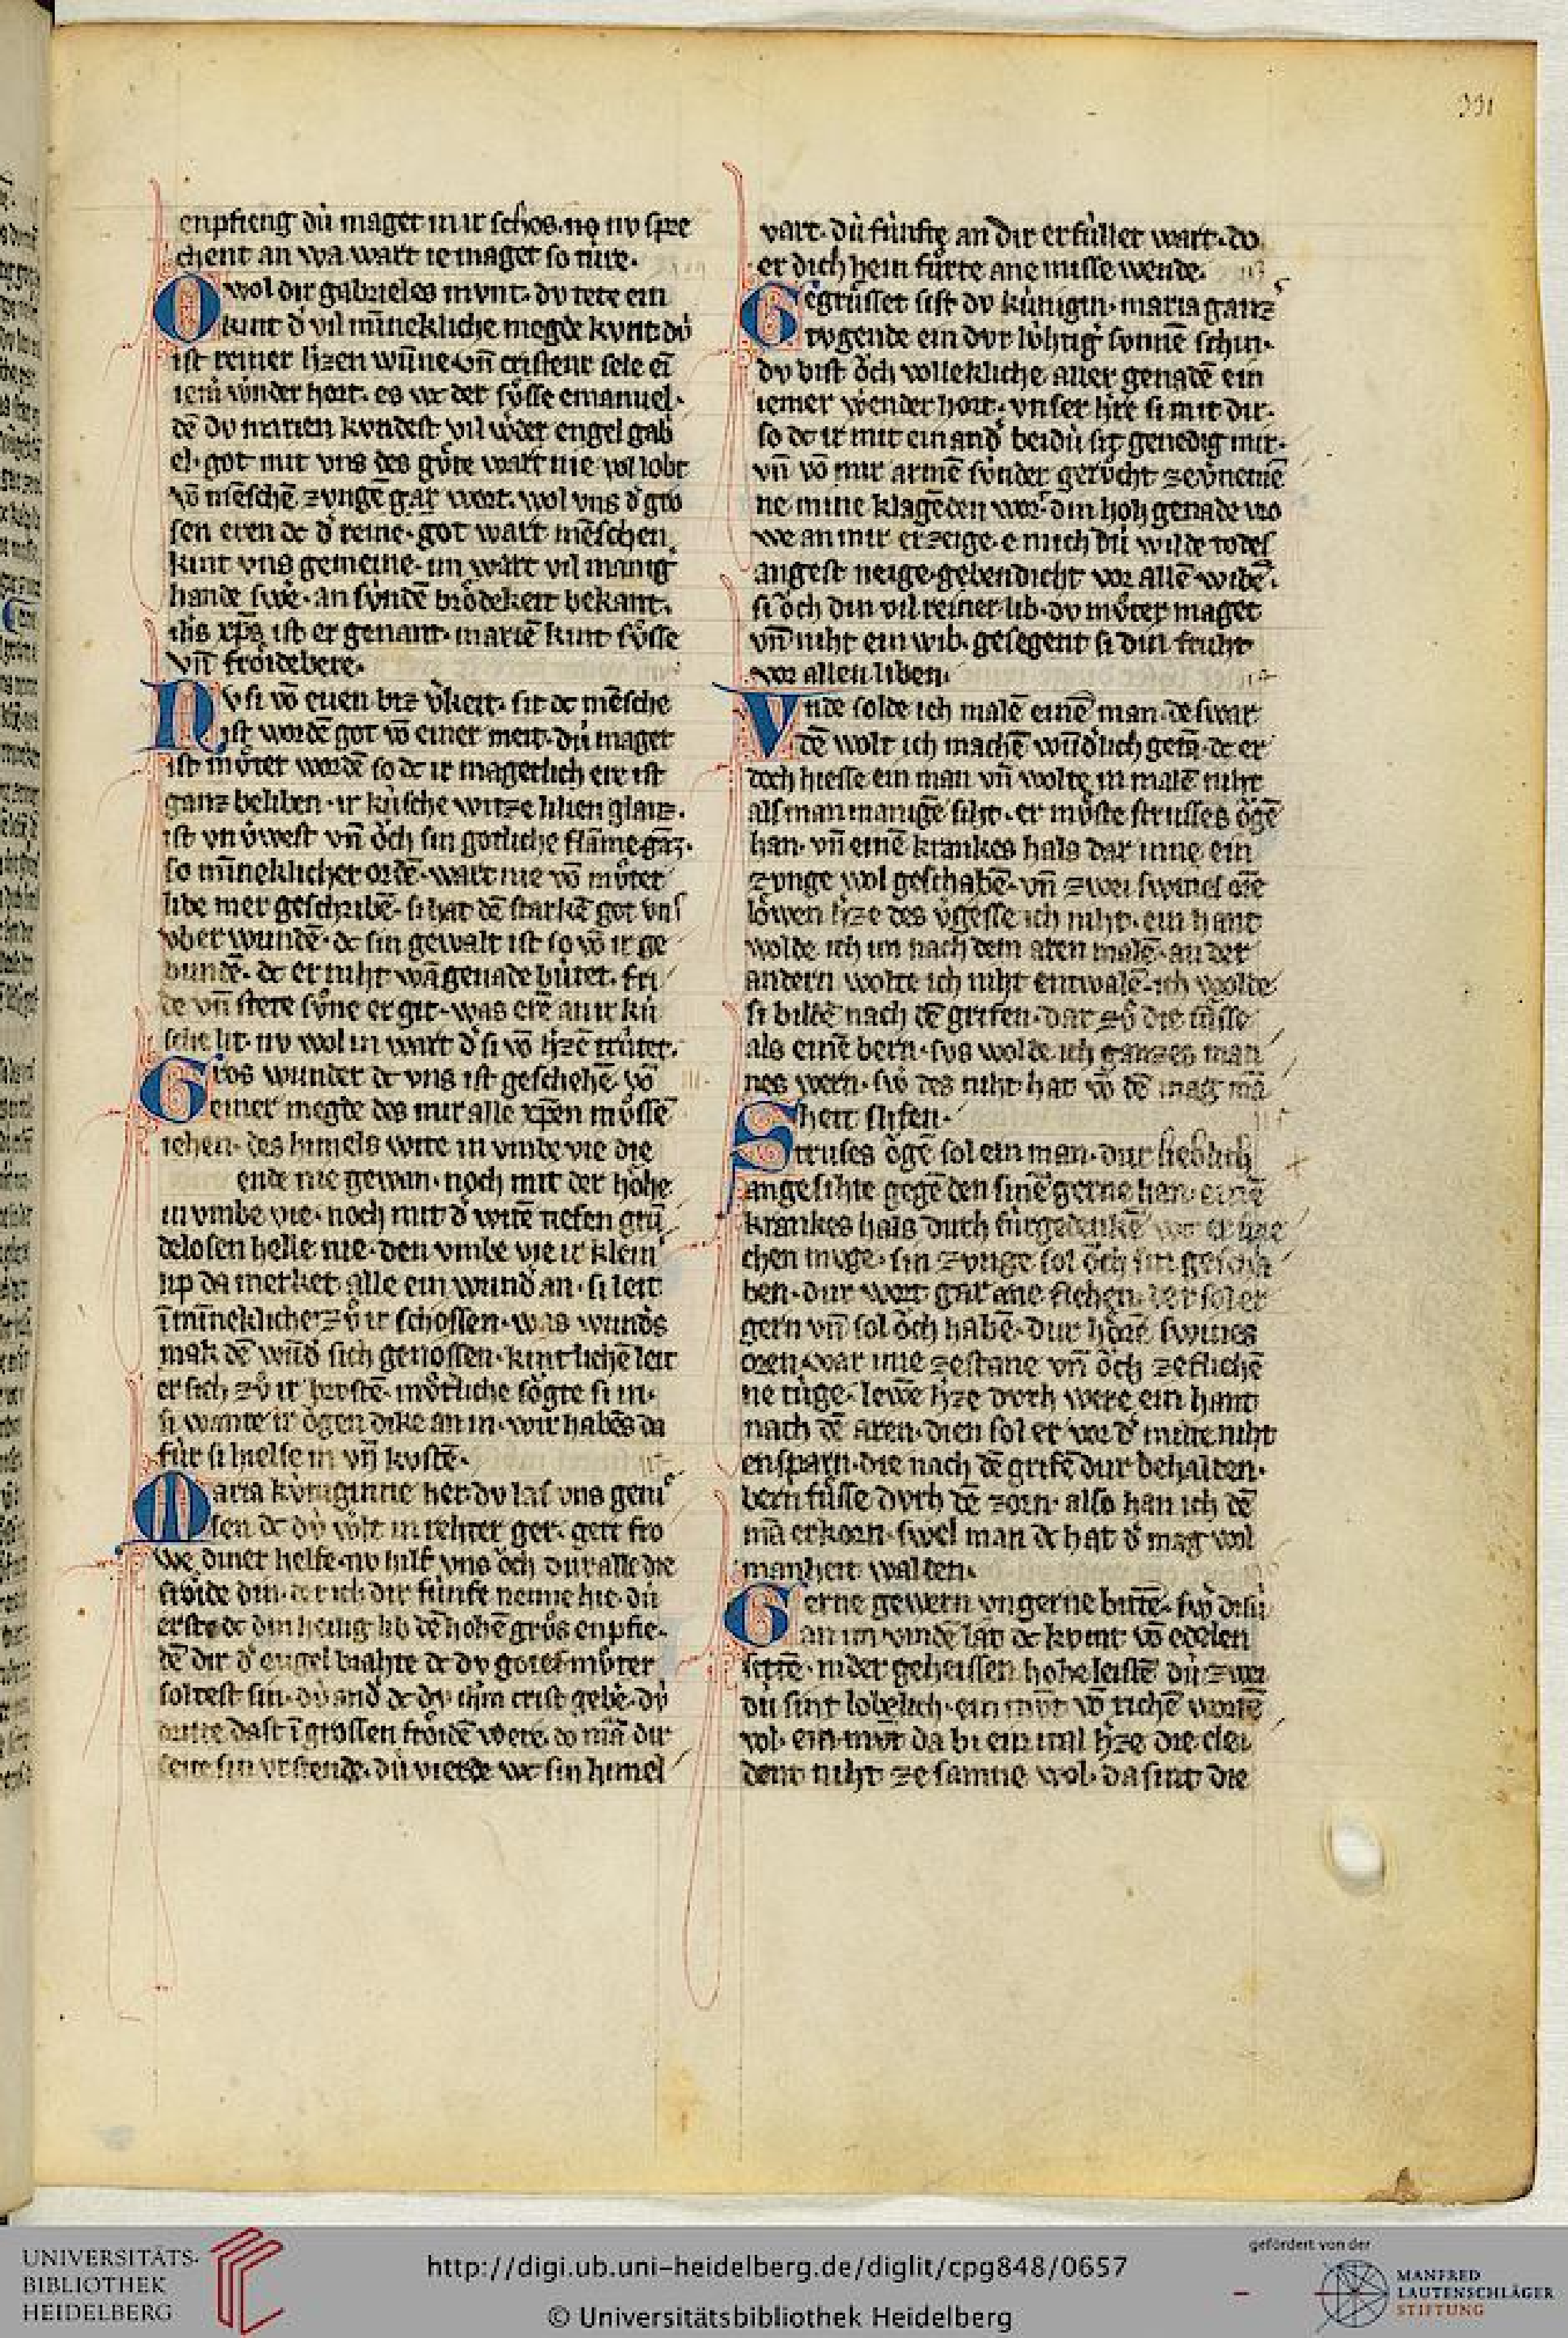 331
enpfieng dú maget in ir schos. nv spre
chent an wa wart ie maget so túre.
O wol dir gabrieles mvnt. dv tete ein
kunt d̉ vil mīnekliche megde kvnt dv́
ist reiner h̉zen wūne vn̄ cristenr sele ei
iem̉ wnder hort. es wc der sv̊sse emanuel.
dē dv marien kvndest vil w̉der engel gab
el. got mit vns des gv̊te wart nie vol lobt
vō mēschē zvngē gar wert. wol vns d̉ gro
sen eren dc d̉ reine. got wart mēschen
kint vns gemeine. im wart vil manig
hande swe. an svndē brôdekeit bekant.
ih̄s xp̄s ist er genant. mariē kint sv̊sse
vn̄ frôidebere.
Nv si vō euen biz v̉keit. sit dc mēsche
ist wordē got vō einer meit. dú maget
ist mv̊ter wordē so dc ir magetlich ere ist
ganz beliben. ir kúsche witze lilien glanz.
ist vn v̉west vn̄ ôch sin gotliche flāme gāz.
so mīneklicher ordē. wart nie vō mv̊ter
libe mer geschribē. si hat dē starkē got vns
vber wundē. dc sin gewalt ist so vō ir ge
bundē. dc er niht wā genade bútet. fri
de vn̄ stete sv̊ne er git. was erē an ir kú
sche lit. nv wol in wart d̉ si vō h̉zē trútet.
Gros wunder dc vns ist geschehē. vō
einer megde des mir alle xp̄en mv̊ssē
iehen. des himels wite in vmbe vie die
ende nie gewan. noch mit der hôhe
in vmbe vie. noch mit d̉ witē tiefen grū
delosen helle nie. den vmbe vie ir klein̉
lip da merket alle ein wund̉ an. si leit
ī mīneklicher zv̊ ir schossen. was wund̉s
mak dē wūd̉ sich genossen. kintlichē leit
er sich zv̊ ir brostē. mv̊tliche sôgte si in.
si wante ir ôgen dike an in. wir habēs da
fúr si hielse in vn̄ kvstē.
Maria kv́niginne her. dv las vns geni̊
sen dc dv́ w̉lt in rehter ger. gert fro
we diner helfe. nv hilf vns ôch dur alle die
frôide din. der ich dir fúnfe nenne hie. dú
erste dc din heilig lib dē hohē grv̊s enpfie.
dē dir d̉ engel brahte dc dv gotes mv̊ter
soltest sin. dú and̉ dc dv ih̄m crist gebe. dú
dritte dast ī grossen frôidē were. do mā dir
seite sin vrstende. dú vierde wc sin himel
vart. dú fúnfte an dir erfúllet wart. do
er dich hein fûrte ane misse wende.
Gegrússet sist dv kúnigin. maria ganz̉
tvgende ein dvr lúhtig sunnē schin.
dv bist ôch vollekliche aller genadē ein
iemer w̉ender hort. vnser h̉re si mit dir.
so dc ir mit ein and̉ beidú sit genedig mir.
vn̄ vō mir armē súnder gerv̊cht ze v̉nemē
ne mine klagēden wort. din hoh genade vro
we an mir erzeige. e mich dú wilde todes
angest neige. gebendicht vor allē wibē.
si ôch din vil reiner lib. dv mv̊ter maget
vn̄ niht ein wib. gesegent si din fruht
vor allen liben.
Vnde solde ich malē einē man. deswar
dē wolt ich machē wūd̉lich getā. dc er
doch hiesse ein man vn̄ wolte in malē niht
als man manigē siht. er mv̊ste strusses ôgē
han. vn̄ einē krankes hals dar inne ein
zvnge wol geschabē. vn̄ zwei swines orē
lôwen h̉ze des v̉gesse ich niht. ein hant
wolde ich im nach dem aren malē. an der
andern wolte ich niht entwalē. ich wolde
si bildē nach dē grifen. dar zv̊ die fûsse
als einē bern. svs wolde ich ganzes man
nes wern. sw̉ des niht hat vō dē mag mā
heit slifen.
Struses ôgē sol ein man. dur lieblich
angesihte gegē den sinē gerne han. einē
krankes hals durch fúrgedenkē
chen mvge. sin zvnge sol ôch sin gescha
ben. dur wort gar ane flehen. der sol er
gern vn̄ sol ôch habē. dur hôrē swines
oren. war inne zestane vn̄ ôch ze fliehē
ne túge. lewē h̉ze dvrh were ein hant
nach dē aren. dien sol er vor d̉ milte niht
ensparn. die nach dē grifē dur behalten.
bern fûsse dvrh dē zorn. also han ich dē
mā erkorn. swel man dc hat d̉ mag wol
manheit walten.
Gerne gewern vngerne bittē. sw̉ disú
an im vindē lat dc kvmt vō edelen
sittē. nider geheissen hohe leistē dú zwei
dú sint lobelich. ein mvt vō richē wortē
vol. ein mvt da bi ein mil h̉ze die clei
dent niht ze samne wol. da sint die
UNIVERSITÄTS-
BIBLIOTHEK
HEIDELBERG
http://digi.ub.uni-heidelberg.de/diglit/cpg848/0657
© Universitätsbibliothek Heidelberg
gefördert von der
MANFRED
LAUTENSCHLÄGER
STIFTUNG